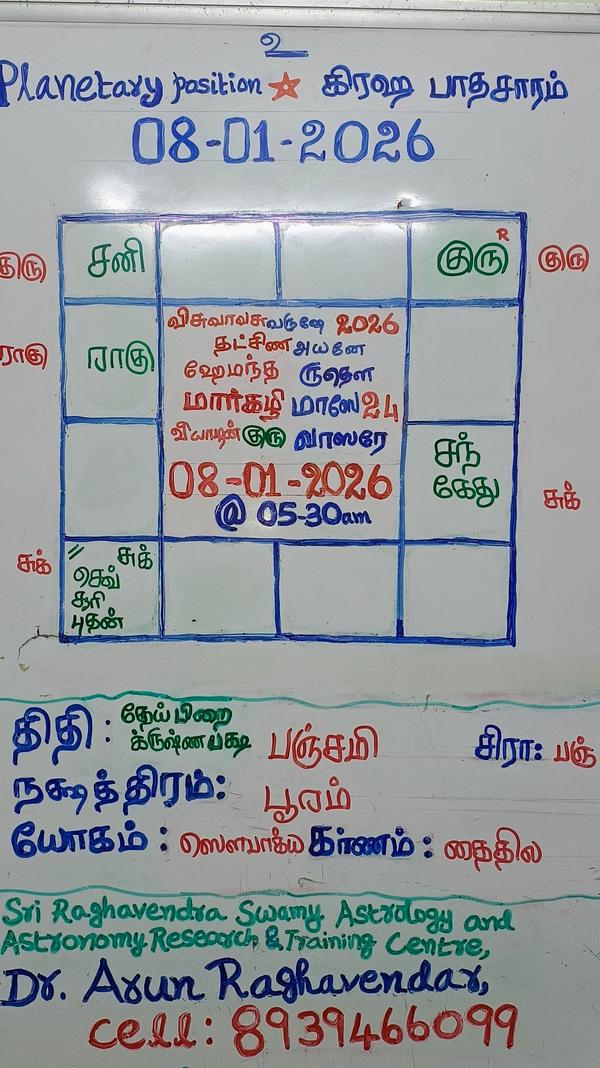 உ
Planetary position கிரஹ பாதசாரம்
08-01-2026
குரு சனி குரு R குரு
ராகு ராகு
விசுவாவசுவருஷே 2026
தட்சிண அயனே
ஹேமந்த ருதௌ
மார்கழி மாஸே 24
வியாழன் குரு வாஸரே
08-01-2026
@ 05-30am
சந்
கேது
சுக்
சுக் லl சுக்
செவ்
சூரி
புதன்
திதி : தேய்பிறை
க்ருஷ்ணபக்ஷ பஞ்சமி சிரா: பஞ்
நக்ஷத்திரம்: பூரம்
யோகம் : ஸௌபாக்ய கர்ணம் : தைதில
Sri Raghavendra Swamy Astrology and
Astronomy Research & Training Centre,
Dr. Arun Raghavendar,
cell: 8939466099